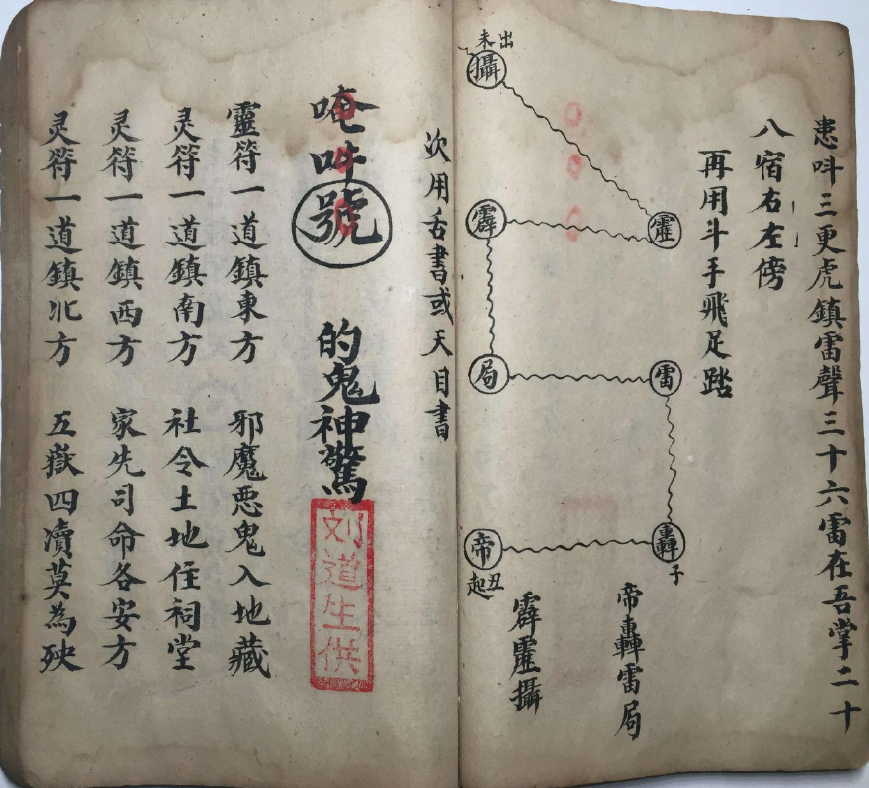 恚吽三更虎鎮雷聲三十六雷在吾掌二十
八宿右左傍
再用斗手飛足踏
未出
攝
霳
霹
局
雷
帝
轟
丑起
子
帝轟雷局
霹霳攝
次用舌書或天目書
唵吽號 的鬼神驚
刘道生供
靈符一道鎮東方 邪魔悪鬼入地藏
灵符一道鎮南方 社令土地住祠堂
灵符一道鎮西方 家先司命各安方
灵符一道鎮北方 五嶽四瀆莫為殃